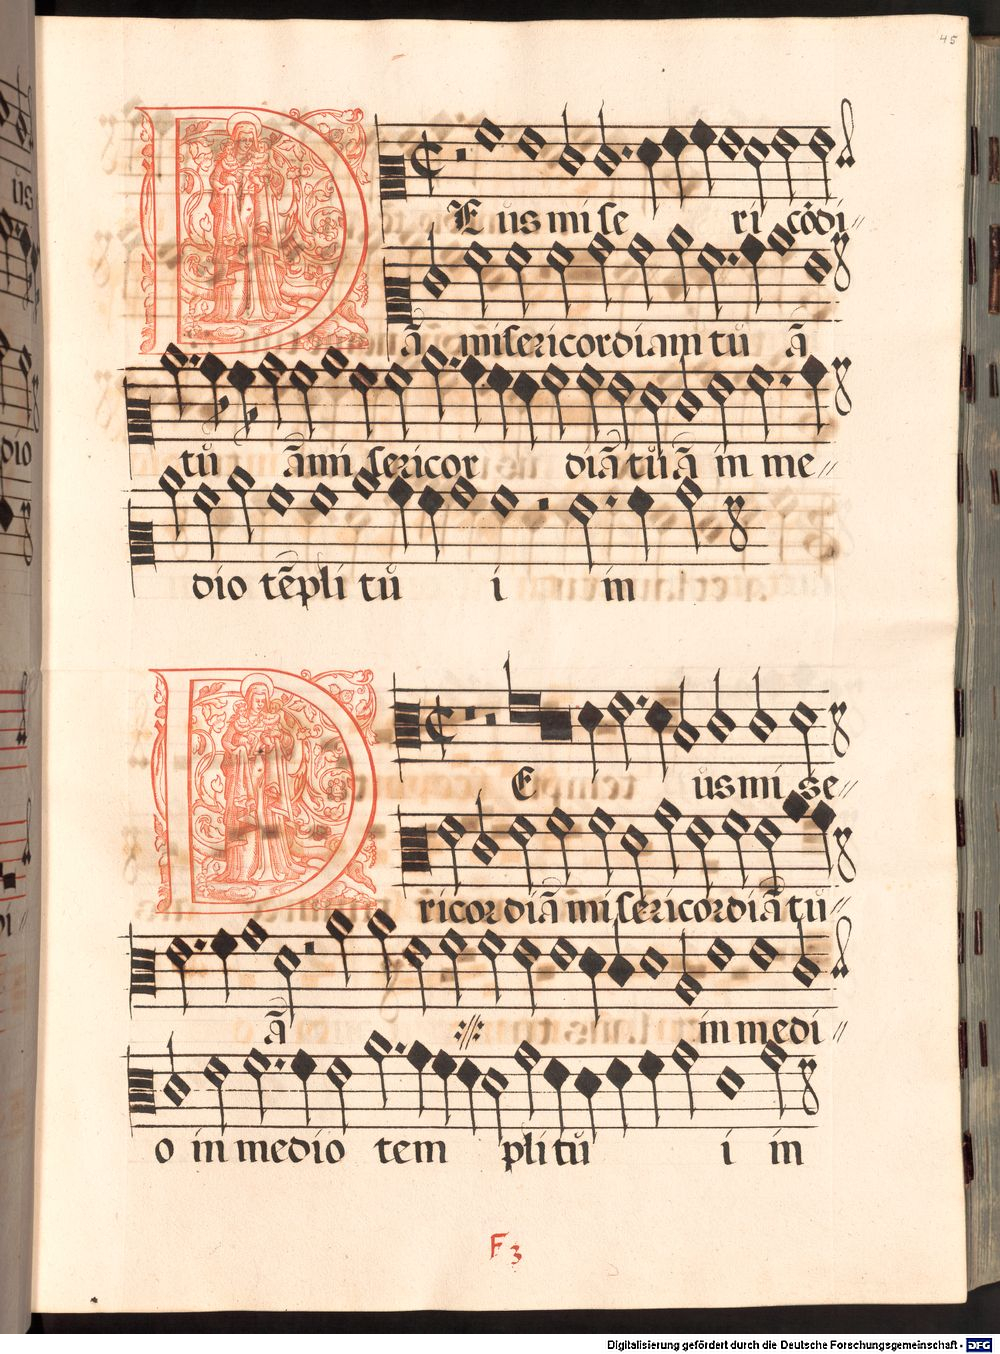 45
DE us mi se ri cōdi //
ā misericordiam tů ā
tů āmi sericor diā tů ā in me //
dio tēpli tů i in
DE us mi se //
ricordiā misericordiā tů
ā :||: in medi //
o in medio tem pli tů i in
F 3
Digitalisierung gefördert durch die Deutsche Forschungsgemeinschaft - DFG